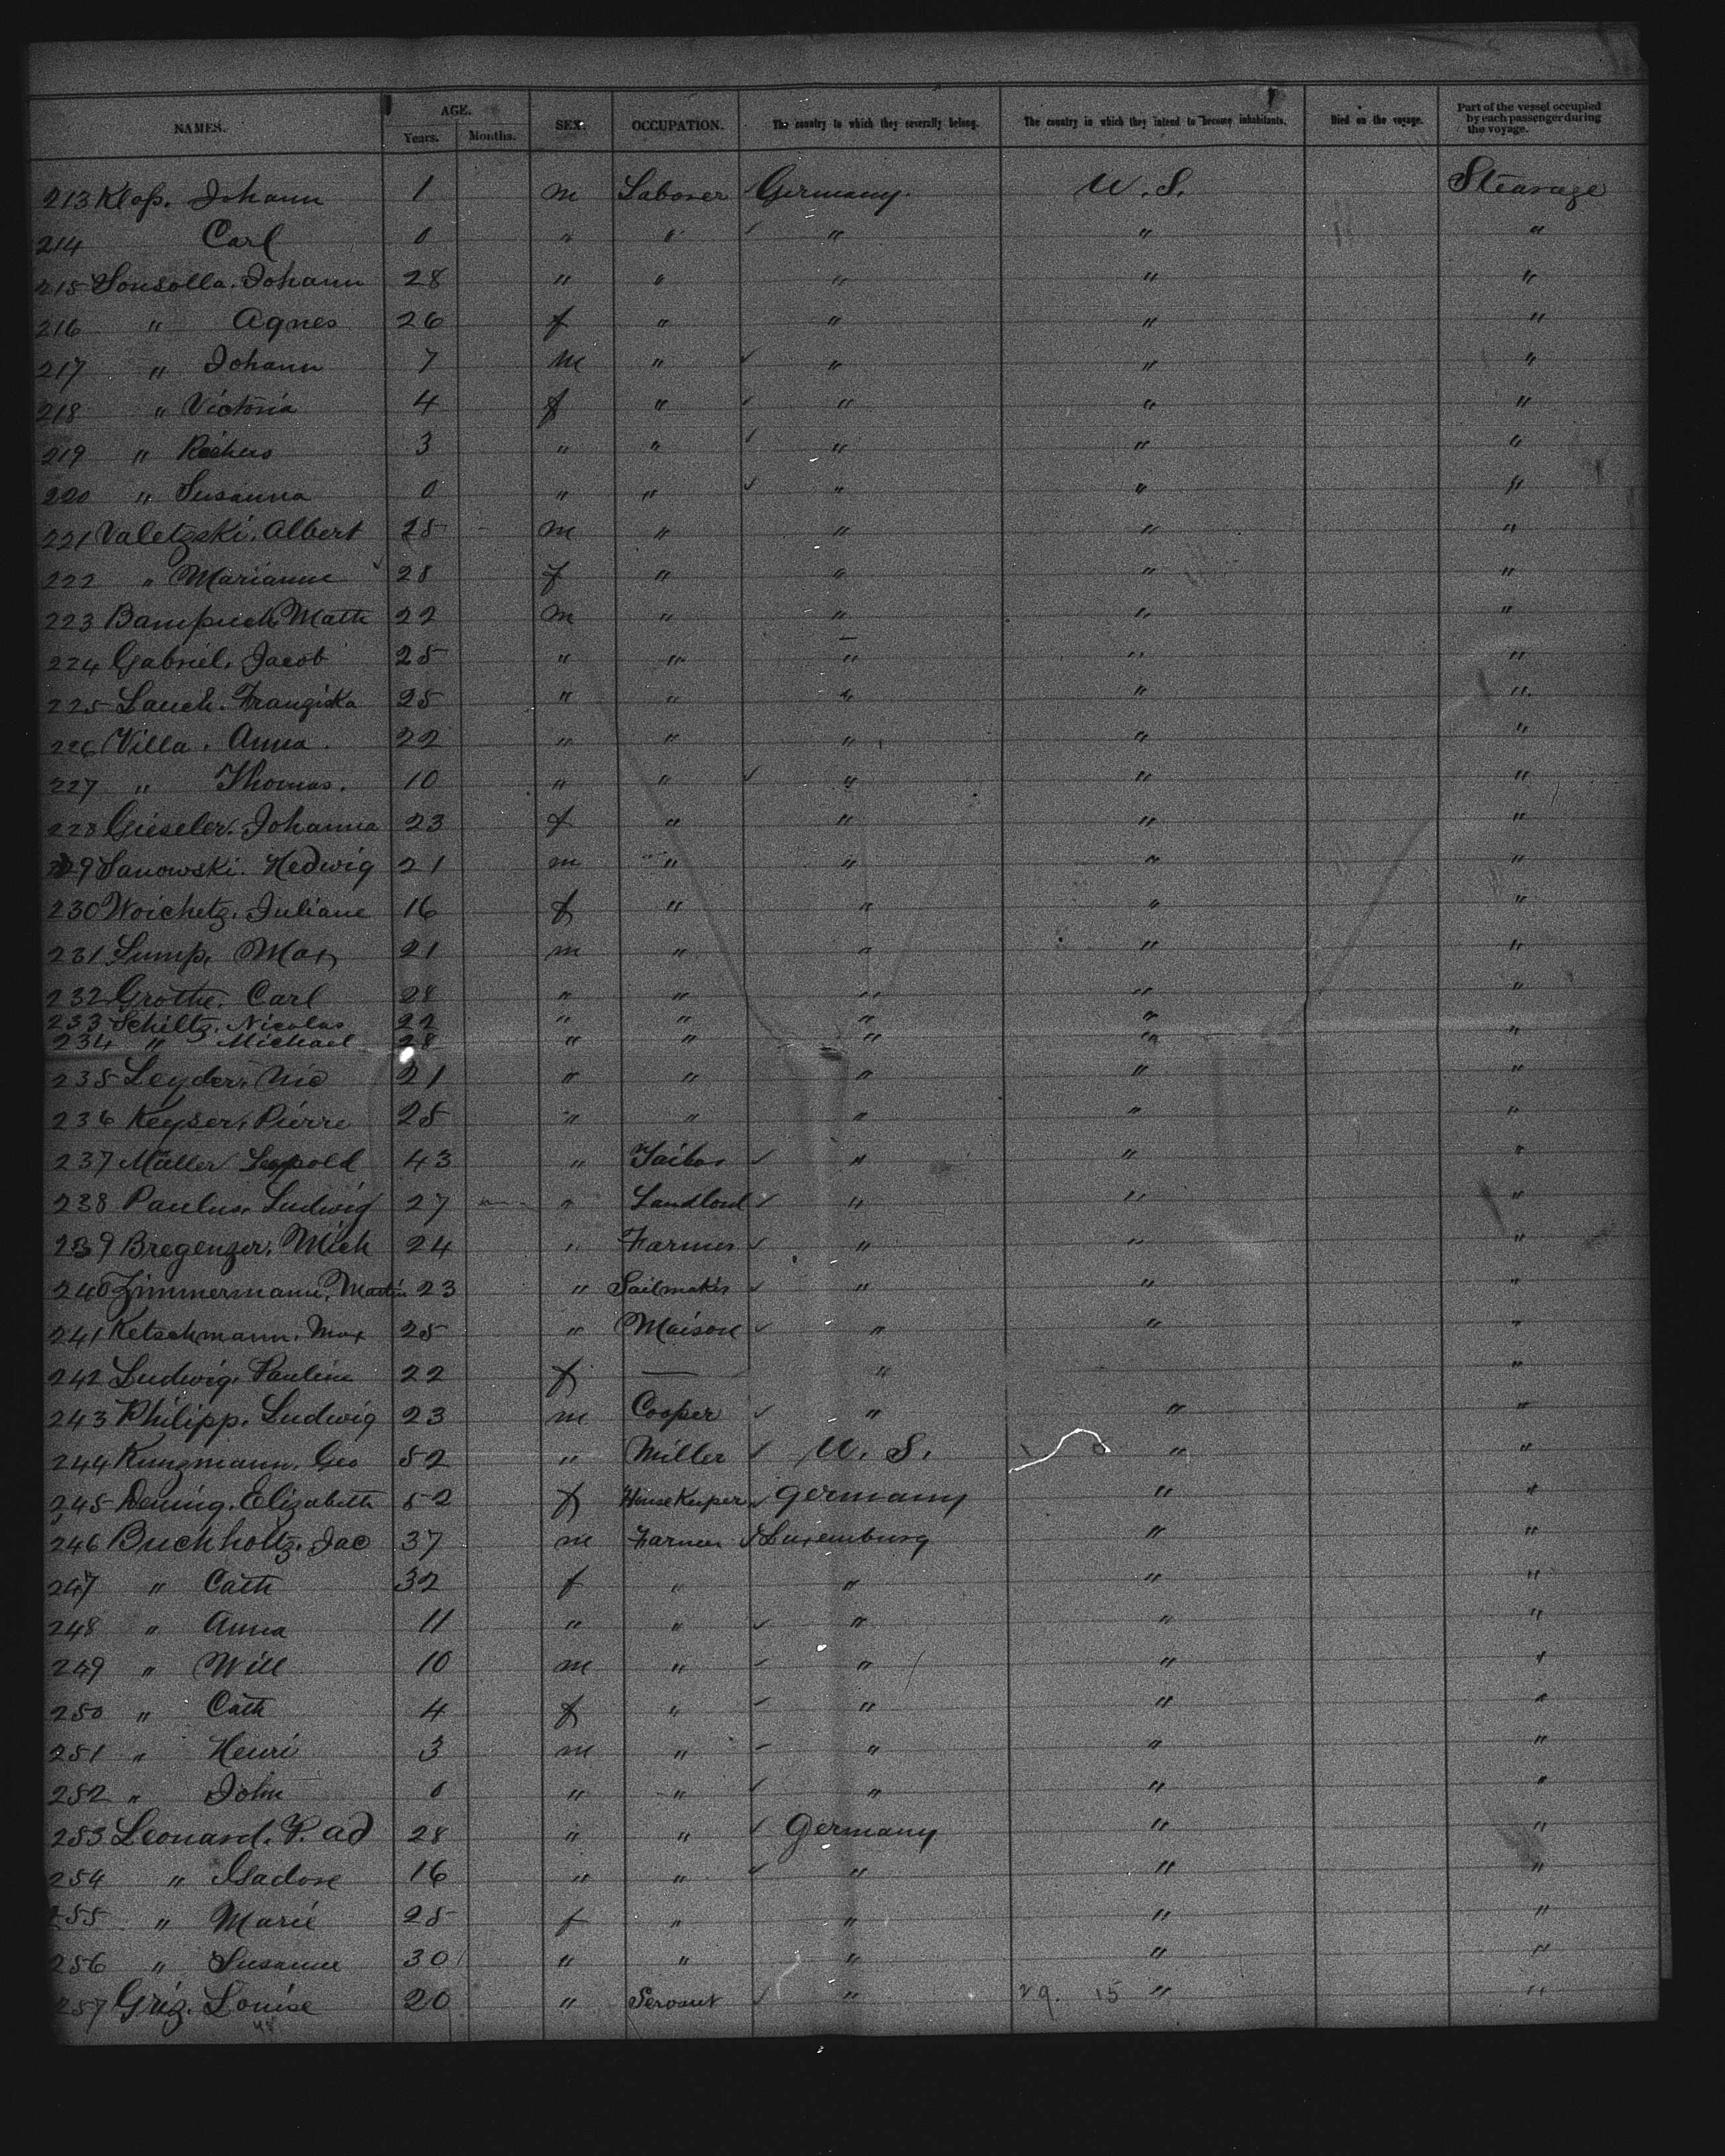 NAMES. AGE. Years. Months. SEX. OCCUPATION. The country to which they severally belong. The country in which they intend to become inhabitants. Died on the voyage. Part of the vessel occupied by each passenger during the voyage.
213 Klop. Johann 1 m Laborer Germany. U. S. Stearage
214 Carl 0 " " " " "
215 Sonsolla. Johann 28 " " " " "
216 " Agnes 26 f " " " "
217 " Johann 7 m " " " "
218 " Victoria 4 f " " " "
219 " 3 " " " " "
220 " Susanna 0 " " " " "
221 Valetzski. Albert 25 m " " " "
222 " Marianne 28 f " " " "
223 Math 22 m " " " "
224 Gabriel. Jacob 25 " " " " "
225 Lauch. Franziska 25 " " " " "
226 Villa. Anna. 22 " " " " "
227 " Thomas. 10 " " " " "
228 Gieseler. Johanna 23 f " " " "
229 Sanowski. Hedwig 21 m " " " "
230 Woichetz. Juliane 16 f " " " "
231 Lump. Max 21 m " " " "
232 Grothe. Carl 28 " " " " "
233 Schiltz. Nicolas 22 " " " "
234 " Michael 28 " " " " "
235 Leyder. Nic 21 " " " " "
236 Keyser. Pierre 25 " " " " "
237 Müller Leopold 43 " Tailor " " "
238 Paulus. Ludwig 27 " Landlord " " "
239 Bregenzer. Mich 24 " Farmer " " "
240 Zimmermann. Martin 23 " Sailmaker " " "
241 Ketschmann. Max 25 " Maison " " "
242 Ludwig. Pauline 22 f — " " "
243 Philipp. Ludwig 23 m Cooper " " "
244 Kunzmann. Geo 52 " Miller U. S. " "
245 Deming. Elizabeth 52 f HouseKeeper Germany " "
246 Buchholtz. Jac 37 m Farmer Luxemburg " "
247 " Cath 32 f " " " "
248 " Anna 11 " " " " "
249 " Will 10 m " " " "
250 " Cath 4 f " " " "
251 " Henri 3 m " " " "
252 " John 0 " " " " "
253 Leonard. P. ad 28 " " Germany " "
254 " Isadore 16 " " " " "
255 " Marie 25 f " " " "
256 " Susanne 30 " " " " "
257 Griz. Louise 20 " Servant " 29. 15 " "